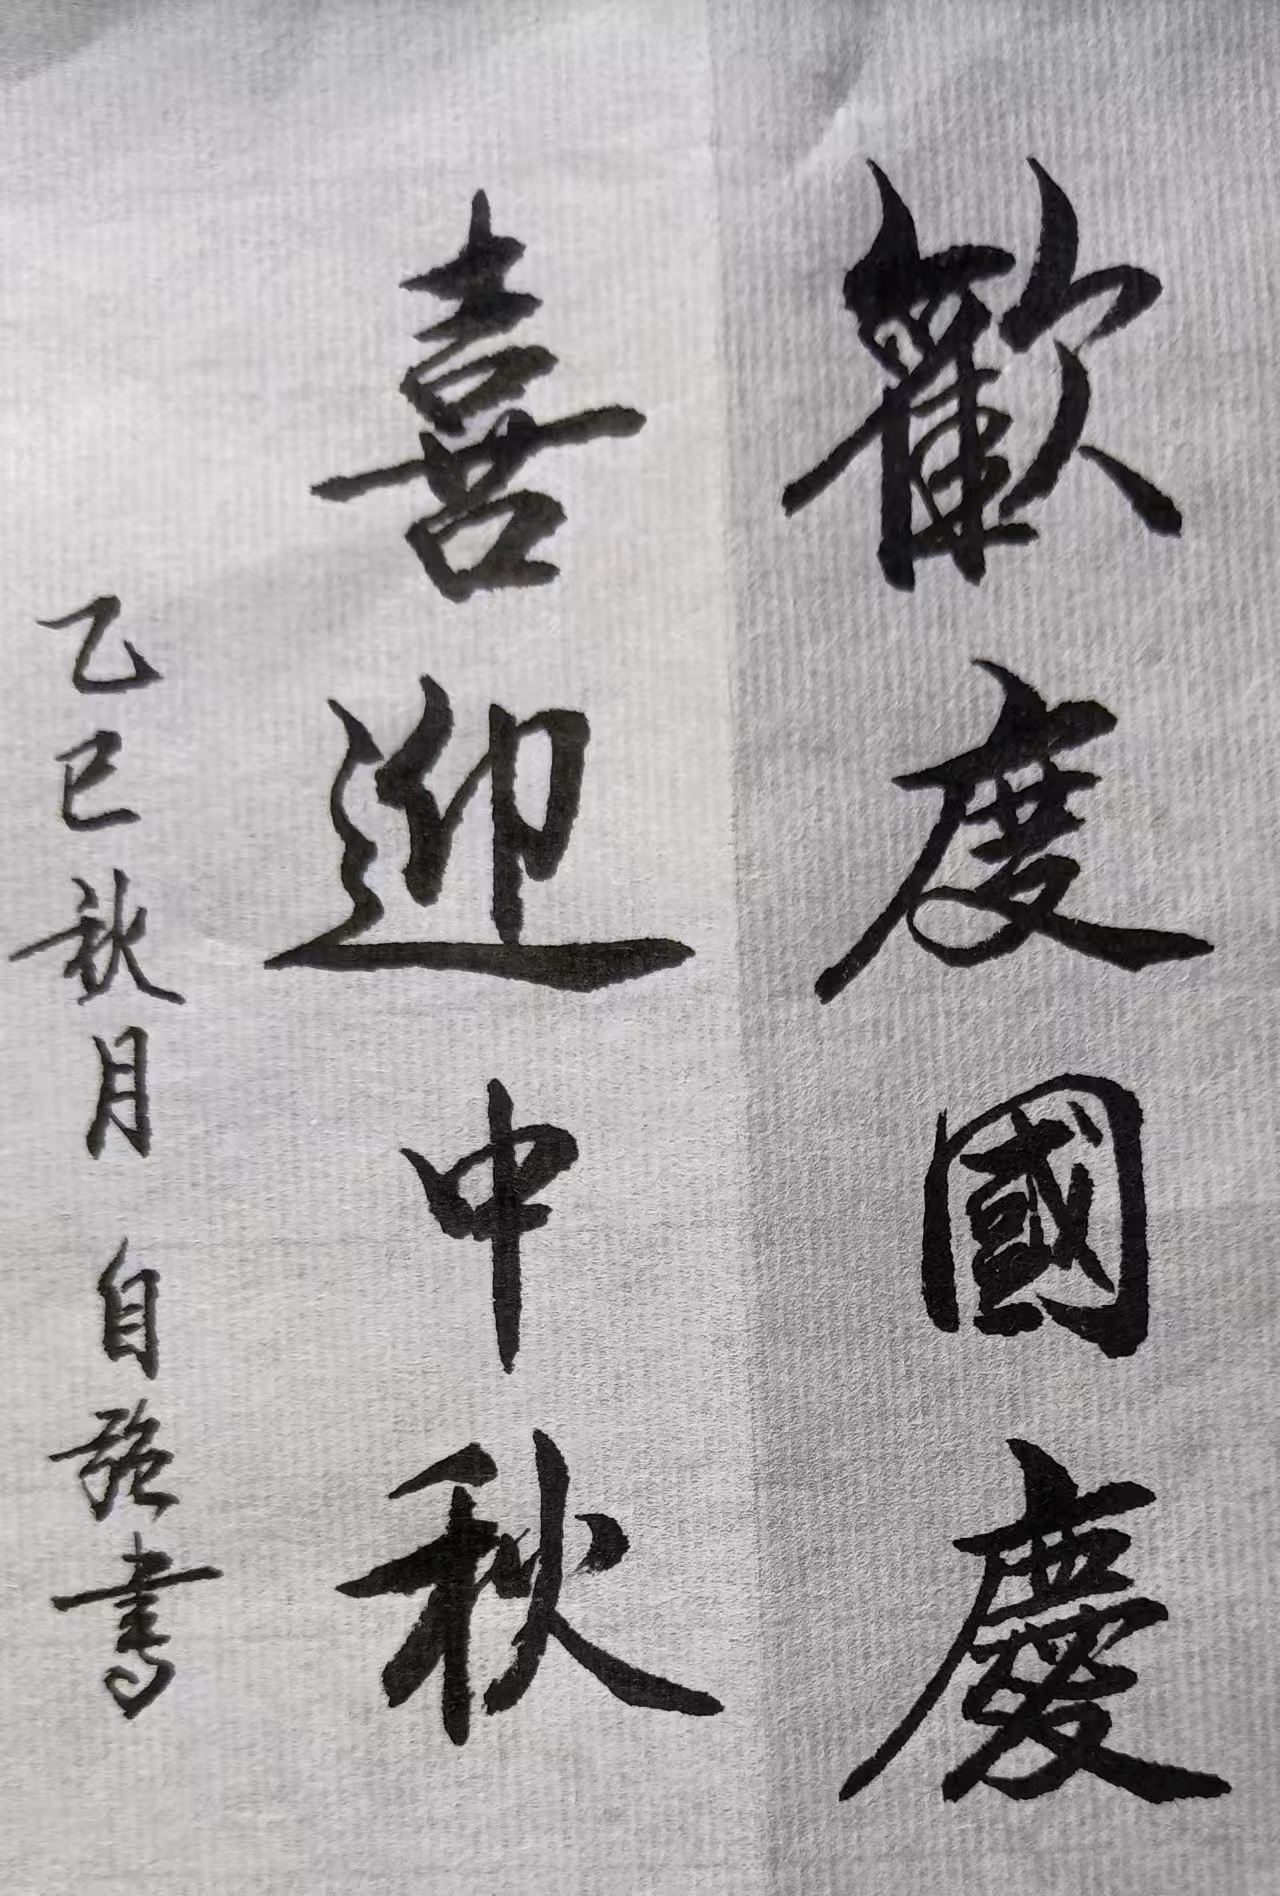 歡度國慶
喜迎中秋
乙巳秋月 自強書